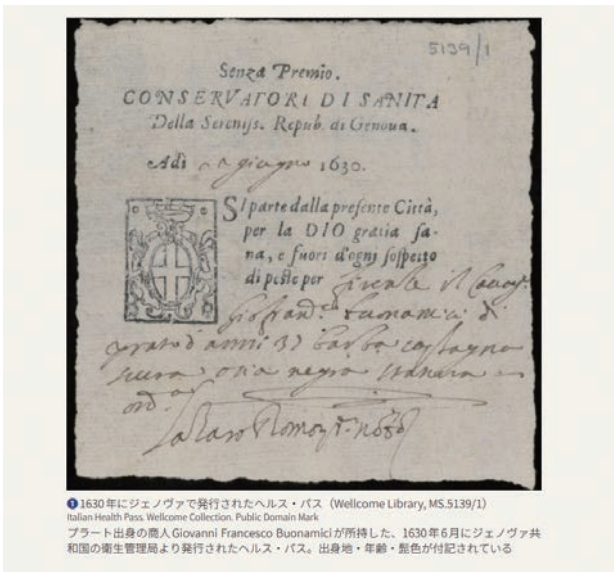 5139/1
Senza Premio.
CONSERVATORI DI SANITA
Della Sereniſs. Repub. di Genova.
Adi giugno 1630.
SI parte dalla preſente Città,
per la DIO gratia ſa-
na, e fuori d'ogni ſoſpetto
di peſte per Firenze il
buonamici di
prato d anni 37 barba castagna
scura
❶1630年にジェノヴァで発行されたヘルス・パス（Wellcome Library, MS.5139/1）
Italian Health Pass. Wellcome Collection. Public Domain Mark
プラート出身の商人Giovanni Francesco Buonamiciが所持した、1630年6月にジェノヴァ共
和国の衛生管理局より発行されたヘルス・パス。出身地・年齢・髭色が付記されている